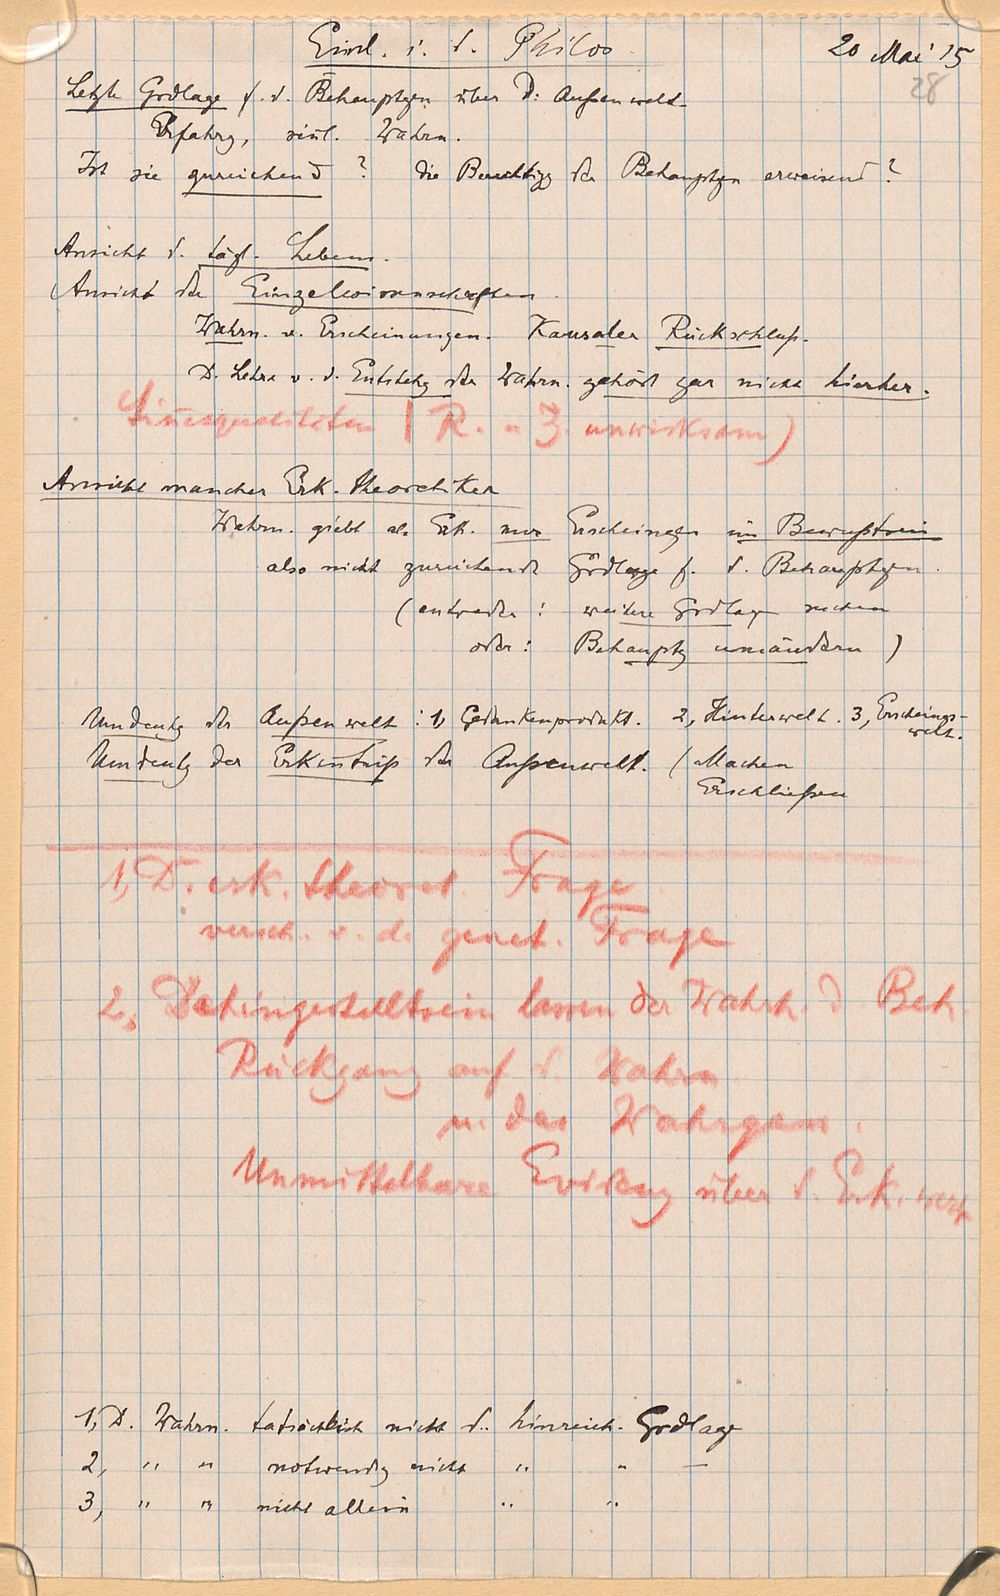 Einl. i. d. Philos 20 Mai 15
28
Letzte Grdlage f. d. Behauptgen über D. Außenwelt
Erfahrg, sinl. Wahrn.
Ist sie zureichend? die Berechtigg der Behauptgen erweisend?
Ansicht d. tägl. Lebens.
Ansicht der Einzelwissenschaften.
Wahrn. v. Erscheinungen. Kausaler Rückschluß.
D. Lehre v. d. Entstehg der Wahrn. gehört gar nicht hierher.
Sinnesqualitäten (R. u Z. unwirksam)
Ansicht mancher Erk. theoretiker
Wahrn. giebt als Erk. nur Erscheingen im Bewußtsein
also nicht zureichende Grdlage f. d. Behauptgen.
(entweder: weitere Grdlage suchen
oder: Behauptg umändern)
Umdeutg der Außenwelt: 1, Gedankenprodukt. 2, Hinterwelt. 3, Erscheings-
welt.
Umdeutg der Erkentniß der Außenwelt. (Machen
Erschließen
1, D. erk. theoret. Frage
versch. v. d. genet. Frage
2, Dahingestelltsein lassen der Wahrh. d. Beh.
Rückgang auf d. Wahrn
u. das Wahrgen.
Unmittelbare über d. Erk. wert
1, D. Wahrn. tatsächlich nicht d. hinreich. Grdlage
2, " " notwendig nicht " " —
3, " " nicht allein " "